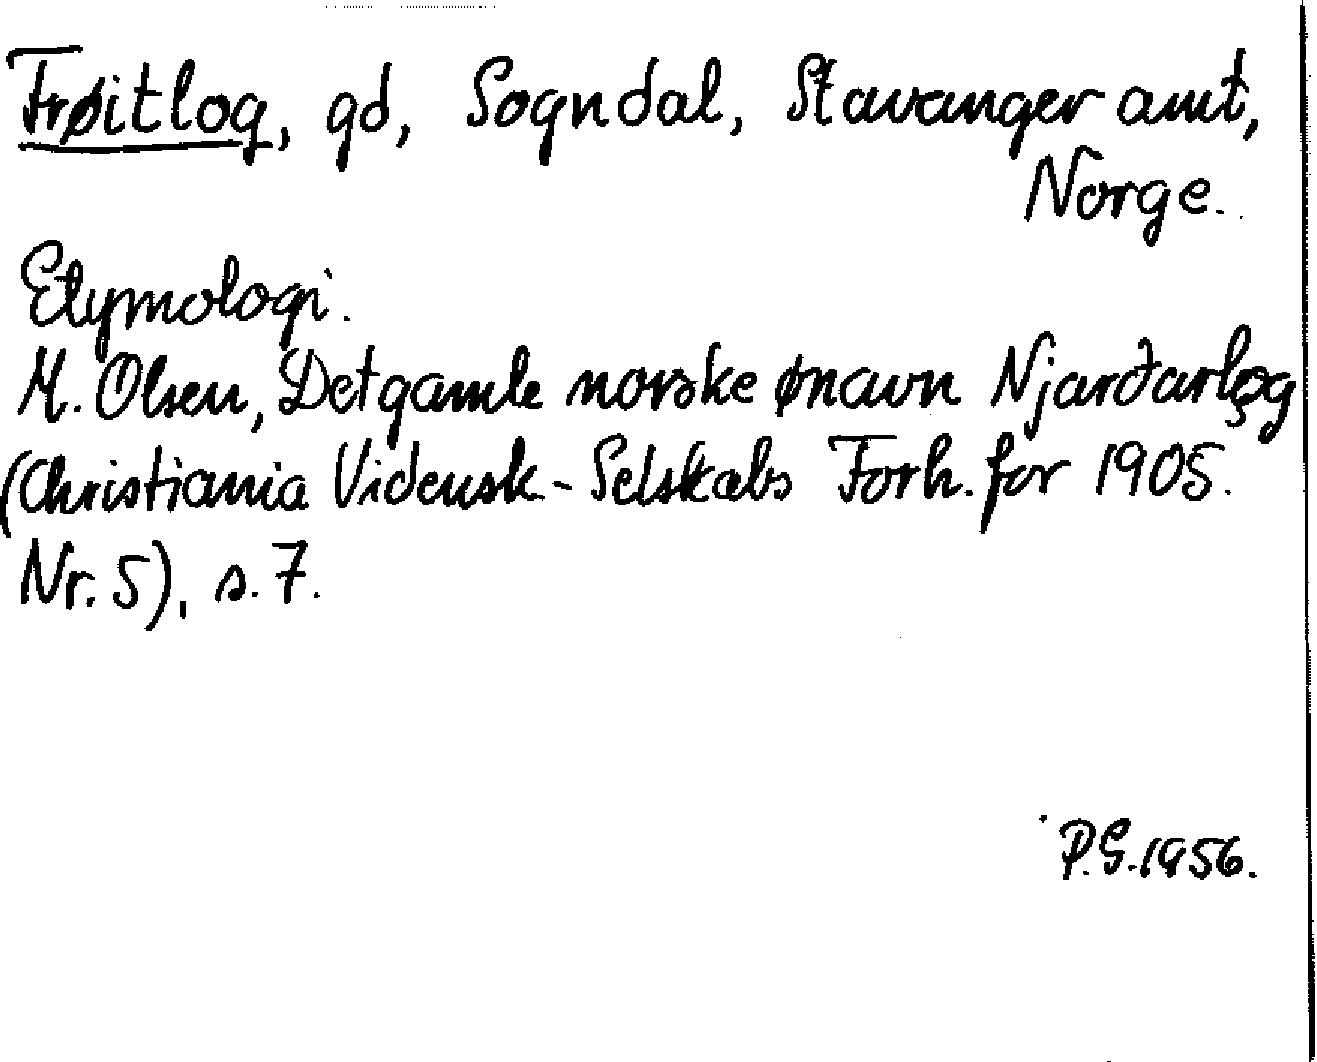 Frøitlog, gd, Sogndal, Stavanger amt,
Norge.
Etymologi.
M. Olsen, Det gamle norske ønavn Njarðarlǫg
(Christiania Vidensk.-Selskabs Forh. for 1905.
Nr. 5), s. 7.
P.G. 1956.